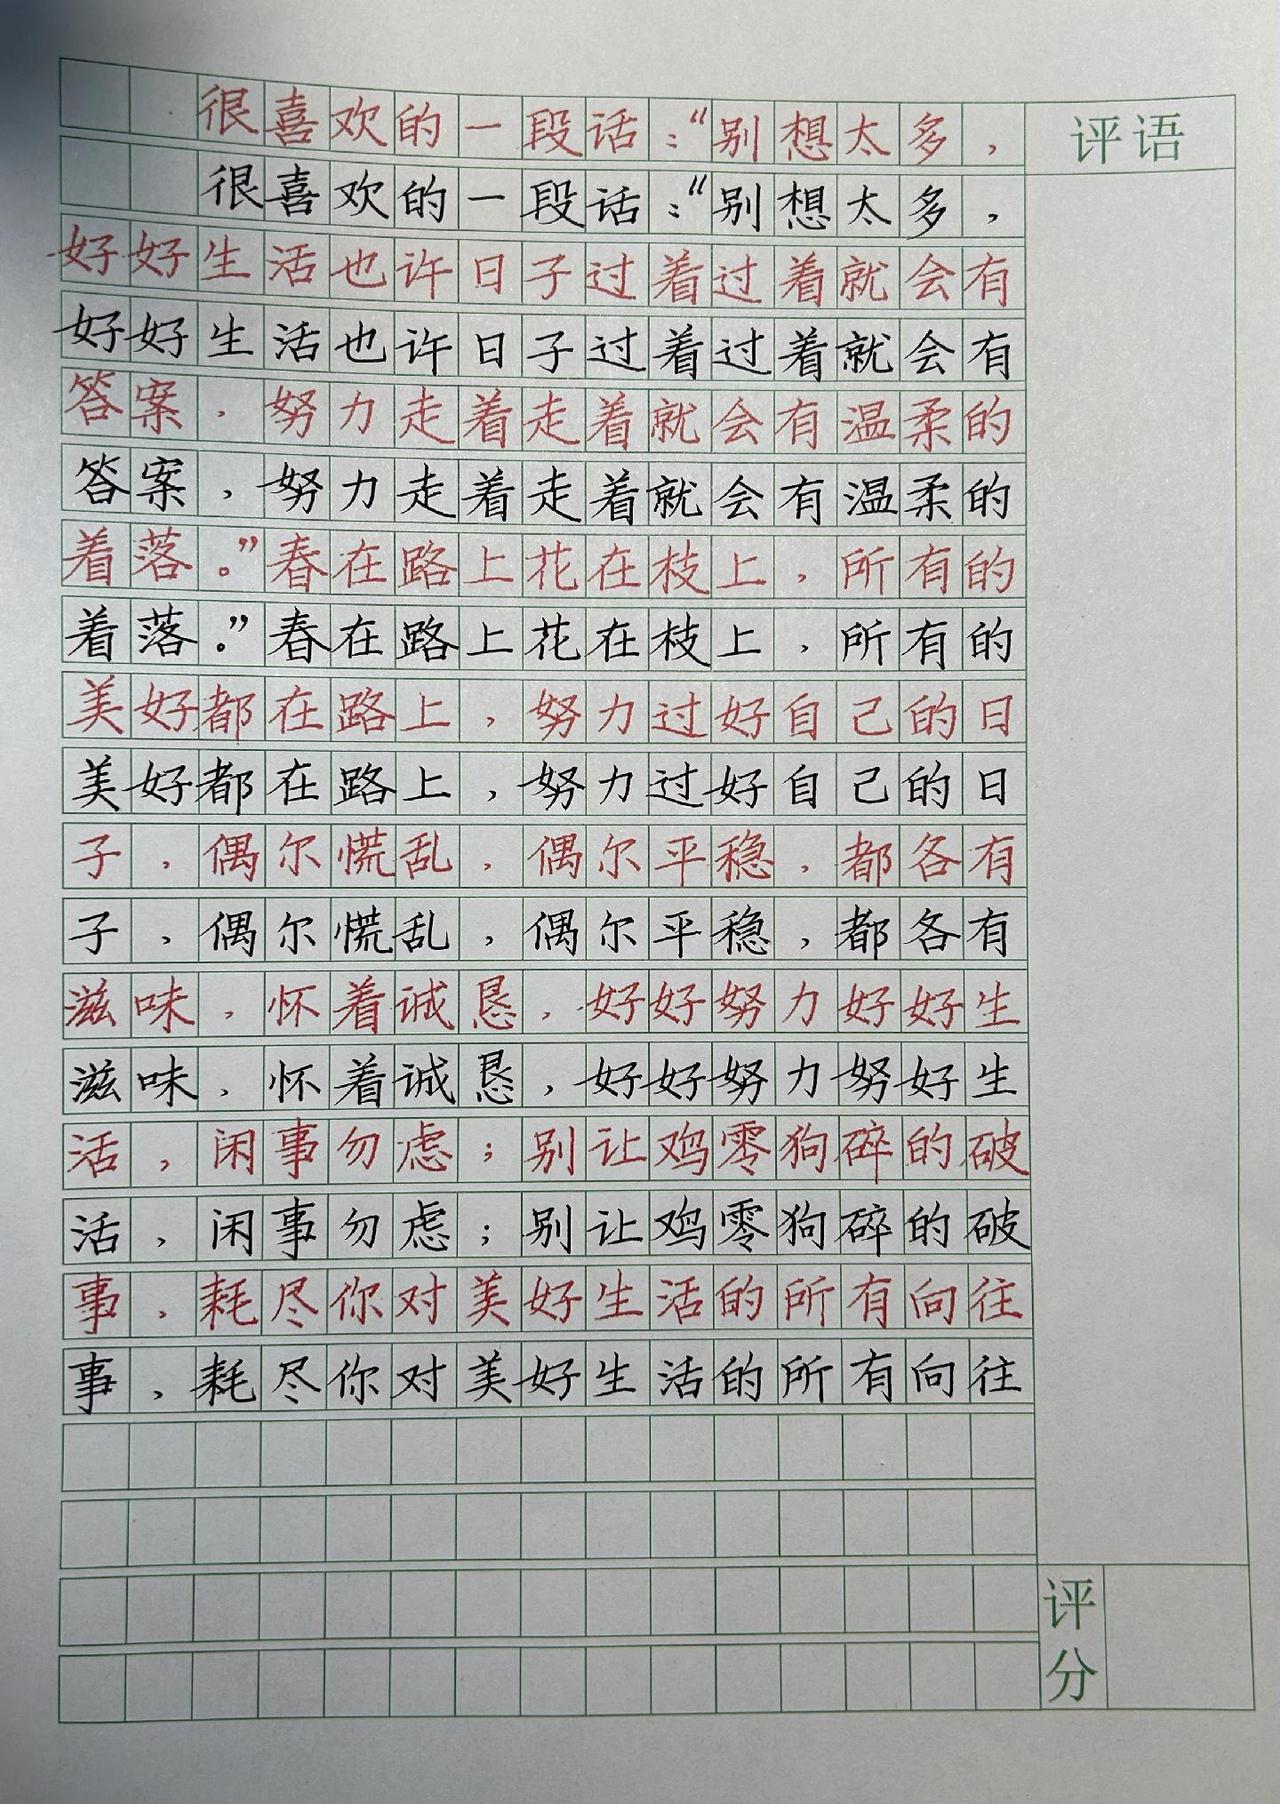 很喜欢的一段话：“别想太多，
评语
很喜欢的一段话：“别想太多，
好好生活也许日子过着过着就会有
好好生活也许日子过着过着就会有
答案，努力走着走着就会有温柔的
答案，努力走着走着就会有温柔的
着落。”春在路上花在枝上，所有的
着落。”春在路上花在枝上，所有的
美好都在路上，努力过好自己的日
美好都在路上，努力过好自己的日
子，偶尔慌乱，偶尔平稳，都各有
子，偶尔慌乱，偶尔平稳，都各有
滋味，怀着诚恳，好好努力好好生
滋味，怀着诚恳，好好努力努好生
活，闲事勿虑；别让鸡零狗碎的破
活，闲事勿虑；别让鸡零狗碎的破
事，耗尽你对美好生活的所有向往
事，耗尽你对美好生活的所有向往
评分